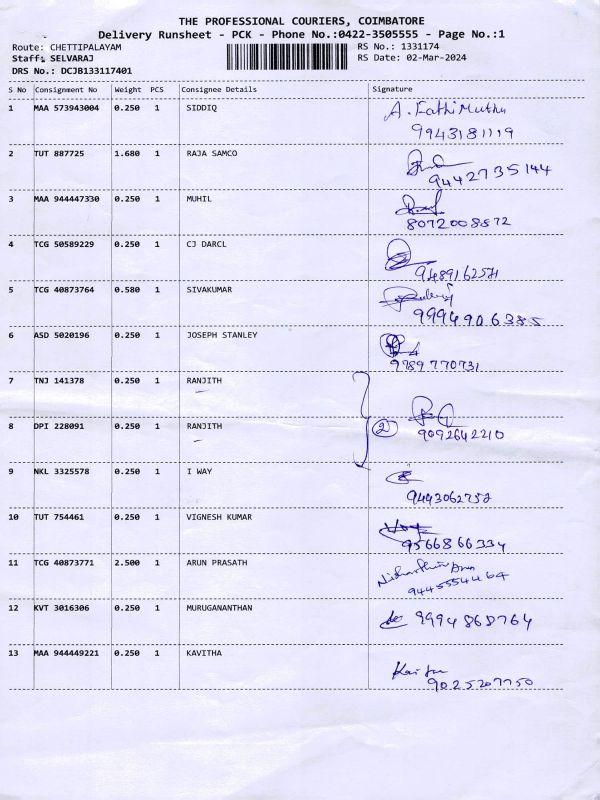 THE PROFESSIONAL COURIERS, COIMBATORE
Delivery Runsheet - PCK - Phone No.:0422-3505555 - Page No.:1
Route: CHETTIPALAYAM RS No.: 1331174
Staff: SELVARAJ RS Date: 02-Mar-2024
DRS No.: DCJB133117401
S No Consignment No Weight PCS Consignee Details Signature
1 MAA 573943004 0.250 1 SIDDIQ A. Fathimuthu
9943181119
2 TUT 887725 1.680 1 RAJA SAMCO
9442735144
3 MAA 944447330 0.250 1 MUHIL
8072008872
4 TCG 50589229 0.250 1 CJ DARCL
9489162571
5 TCG 40873764 0.580 1 SIVAKUMAR
9994906385
6 ASD 5020196 0.250 1 JOSEPH STANLEY
9789770731
7 TNJ 141378 0.250 1 RANJITH
8 DPI 228091 0.250 1 RANJITH 2
9092642210
9 NKL 3325578 0.250 1 I WAY
9443062752
10 TUT 754461 0.250 1 VIGNESH KUMAR
9566866334
11 TCG 40873771 2.500 1 ARUN PRASATH
9445554464
12 KVT 3016306 0.250 1 MURUGANANTHAN 9994868764
13 MAA 944449221 0.250 1 KAVITHA
9025207750